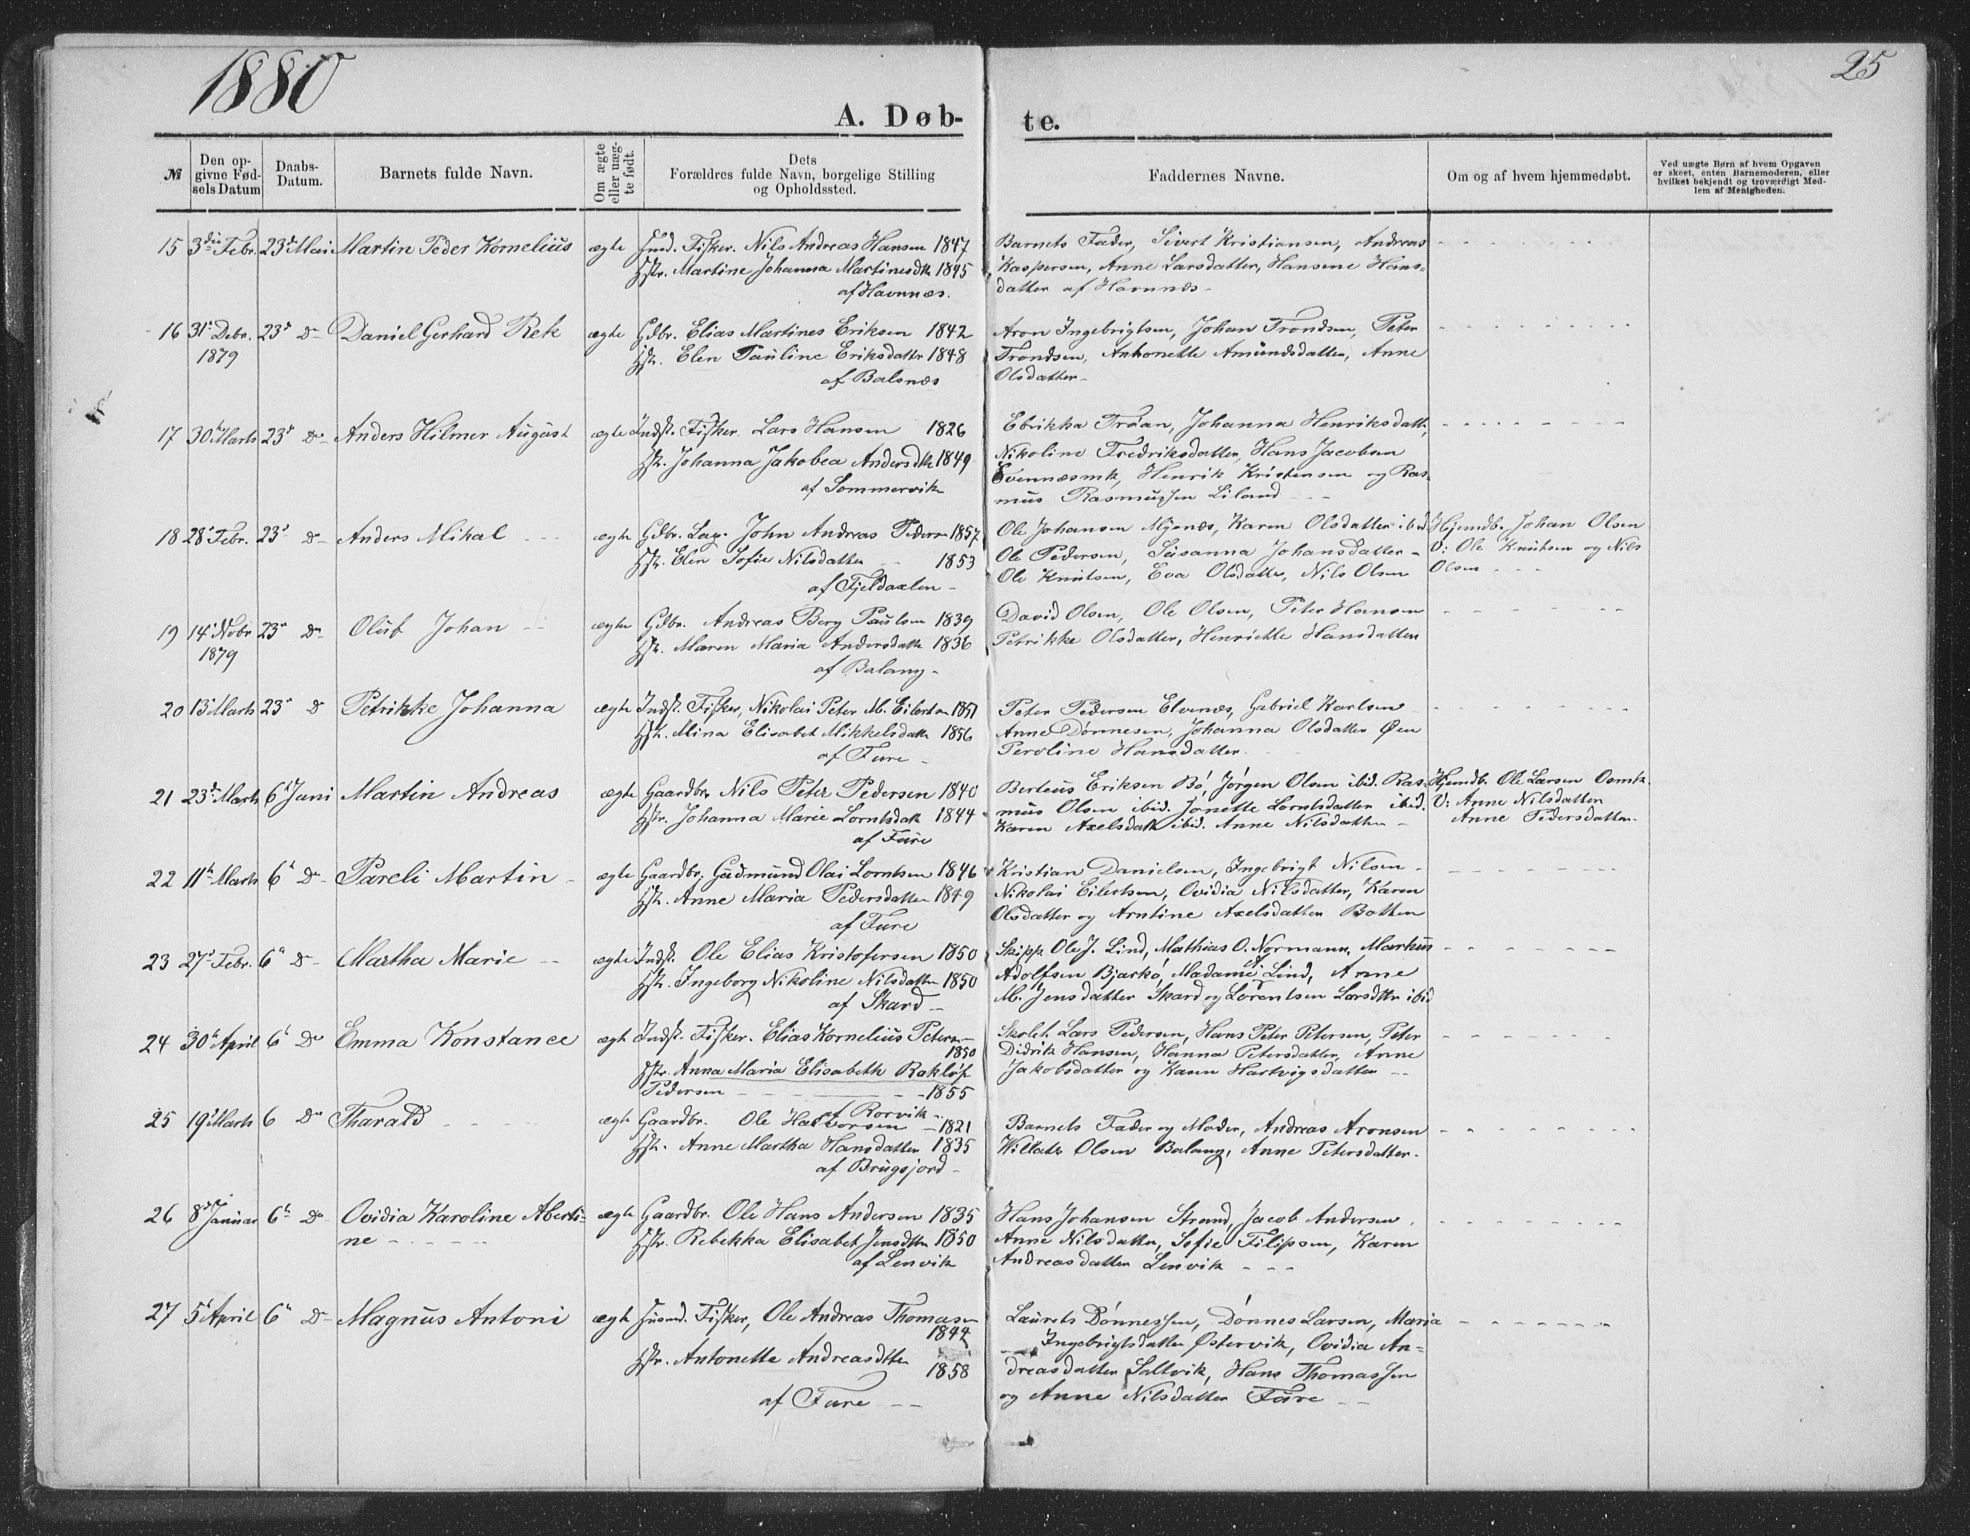 1880
25
A. Døb-
te.
№
Den op-
givne Fød-
sels Datum
Daabs-
Datum.
Barnets fulde Navn.
Om ægte
eller uæg-
te født.
Dets
Forældres fulde Navn, borgelige Stilling
og Opholdssted.
Faddernes Navne.
Om og af hvem hjemmedøbt.
Ved uægte Børn af hvem Opgaven
er skeet, enten Barnemoderen, eller
hvilket bekjendt og troværdigt Med-
lem af Menigheden.
15 3die Febr. 23d Mai Martin Peder Kornelius ægte Fisker. Nils Andreas Hansen 1847
Hstr. Martine Johanna Martinesdtr 1845
af Havnnæs.
Barnets Fader, Sivert Kristiansen, Andreas
Kaspersen, Anne Larsdatter, Hansine Hans-
datter af Havnnæs -
16 31' Debr. 23d Do Daniel Gerhard Rek ægte Gdbr. Elias Martines Eriksen 1842
1879 Hstr. Elen Pauline Eriksdattr 1848
af Balsnæs
Aron Ingebrigtsen, Johan Trondsen, Peter
Trondsen, Antonette Amundsdatter, Anne
Olsdatter -
17 30te Marts 23d Do Anders Hilmer August ægte Indst. Fisker. Lars Hansen 1826
Hstr. Johanna Jakobea Andersdtr 1849
af Sommervik
Johanna Henriksdatt,
Nikoline Fredriksdatter, Hans Jacobsen
Evennæsmk, Henrik Kristensen og Ras-
mus Rasmussen Liland
18 28' Febr. 23d Do Anders Mikal ægte Gdbr. Lap. John Andreas Pedersen 1857
Hstr. Elen Sofie Nilsdatter 1853
af Fjeldaxlen -
Ole Johansen Myrnæs, Karen Olsdatter ibid
Ole Pedersen, Susanna Johansdatter -
Ole Knutsen, Eva Olsdatter, Nils Olsen
Hjemdb. Johan Olsen
V: Ole Knutsen og Nils
Olsen
19 14' Nobr 23d Do Oluf Johan ægte Gdbr. Andreas Berg Paulsen 1839
1879 Hstr. Maren Maria Andersdatter 1836
af Balang -
David Olsen, Ole Olsen, Peter Hansen
Petrikke Olsdatter, Henriette Hansdatter
20 13' Marts 23d Do Petrikke Johanna ægte Indst. Fisker, Nikolai Peter M. Eilertsen 1851
Hstr. Mina Elisabet Mikkelsdattr 1856
af Fure -
Peter Pedersen Elvenæs, Gabriel Karlsen
Anne Dønnesen, Johanna Olsdatter Øen
Peroline Hansdatter.
21 23d Marts 6' Juni Martin Andreas ægte Gaardbr. Nils Peter Pedersen 1840
Hstr. Johanna Marie Lorntsdatr 1844
af Fure
Berteus Eriksen Bö, Jørgen Olsen ibid. Ras-
mus Olsen ibid. Jonette Lorntsdatter ibid.
Karen Axelsdatt ibid. Anne Nilsdatter -
Hjemdb. Ole Larsen
V: Anne Nilsdatter
Anne Pedersdatter.
22 11te Marts 6te Do Pareli Martin ægte Gaardbr. Gudmund Olai Lorntsen 1846
Hstr. Anne Maria Pedersdatter 1849
af Fure
Kristian Danielsen, Ingebrigt Nilsen -
Nikolai Eilertsen, Ovidia Nilsdatter, Karen
Olsdatter og Arntine Axelsdatter Botten
23 27' Febr. 6te Do Martha Marie ægte Indst. Ole Elias Kristofersen 1850
Hstr. Ingeborg Nikoline Nilsdatter 1850
af Skard -
Skipp. Ole J. Lind, Mathias O. Normann, Markus
Adolfsen Bjarkø, Madame Lind, Anne
M. Jensdatter Skard og Lorentsen Larsdtr ibid
24 30te April 6te Do Emma Konstance ægte Indst. Fisker. Elias Kornelius Petersen
1850
Hstr. Anna Maria Elisabeth Rakløf
Pedersen 1855
af Rørvik
Lars Pedersen, Hans Peter Petersen, Peter
Didrik Hansen, Hanna Petersdatter, Anne
Jakobsdatter og Karen Hartvigsdatter
25 19' Marts 6 Do Tharald ægte Gaardbr. Ole Halvorsen 1821
Hstr. Anne Martha Hansdatter 1835
af Brugsjord -
Barnets Fader og Moder, Andreas Aronsen
Olsen Balang, Anne Petersdatter.
26 8d Januar 6te Do Ovidia Karoline Aberti-
ne
ægte Gaardbr. Ole Hans Andersen 1835
Hstr. Rebekka Elisabet Jensdttr 1850
af Lenvik
Hans Johansen Strand, Jacob Andersen
Anne Nilsdatter, Sofie Filipsen, Karen
Andreasdatter Lenvik
27 5' April 6te Do Magnus Antoni ægte Fisker, Ole Andreas Thomasen
1844
Hstr. Antonette Andreasdttr
1858
af Fure
Laurets Dønnessen, Dønnes Larsen, Maria
Ingebrigtsdatter Østervik, Ovidia An-
dreasdatter Saltvik, Hans Thomassen
og Anne Nilsdatter Fure